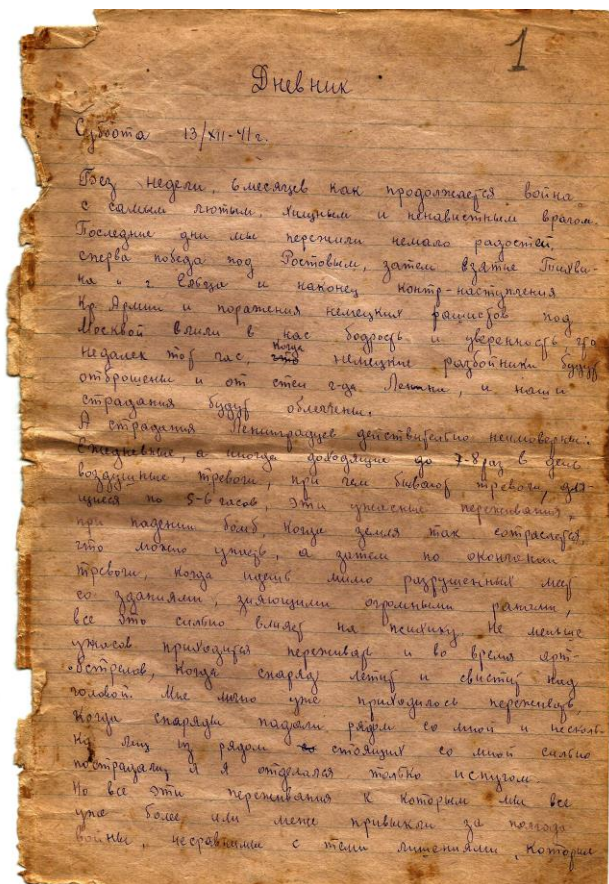 1
Дневник
Суббота 13/XII-41 г.
Без недели, 6 месяцев как продолжается война
с самым лютым, хищным и ненавистным врагом.
Последние дни мы пережили немало радостей,
сперва победа под Ростовым, затем взятие Тихви-
на, и г Ельца и наконец контр-наступления
Кр. Армии и поражения немецких фашистов под
Москвой влили в нас бодрость и уверенность что
недалек тот час, когда немецкие разбойники будут
отброшены и от стен г-да Ленина, и наши
страдания будут облегчены.
А страдания Ленинградцев действительно неимоверны.
Ежедневные, а иногда доходящие до 7-8 раз в день
воздушные тревоги, при чем бывают тревоги, для-
щиеся по 5-6 часов. Эти ужасные переживания,
при падении бомб, когда земля так сотрясается,
что можно упасть, а затем по окончании
тревоги, когда идешь мимо разрушенных мест
со зданиями, зияющими огромными ранами,
все это сильно влияет на психику. Не меньше
ужасов приходится переживать и во время арт-
обстрелов, когда снаряд летит и свистит над
головой. Мне лично уже приходилось переживать,
когда снаряды падали рядом со мной и несколь-
ко лиц из рядом стоящих со мной сильно
пострадали, а я отделался только испугом.
Но все эти переживания к которым мы все
уже более или менее привыкли за полгода
войны, несравнимы с теми лишениями, которые